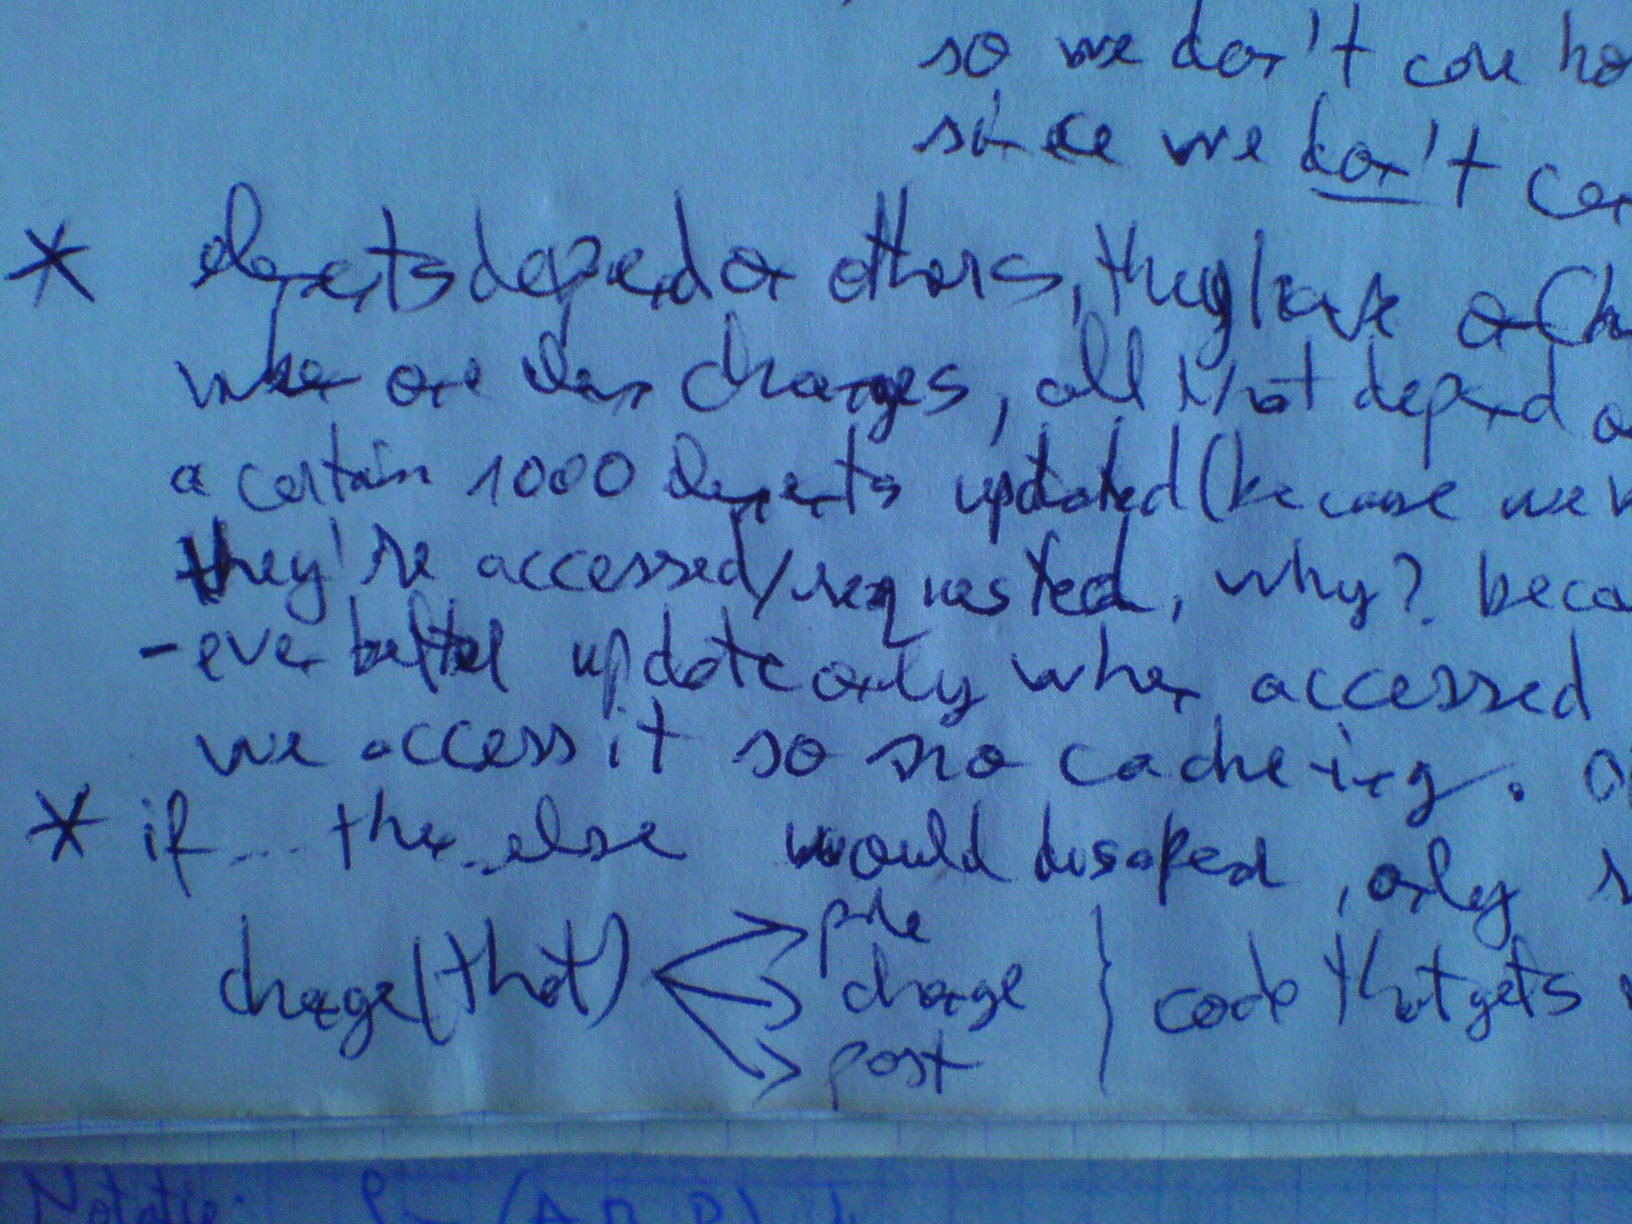 so we don't care ho
since we don't car
* elements depend on others, they have onCh
when one elem changes, all that depend o
a certain 1000 elements updated (because we
they're accessed/requested, why? beca
- even better update only when accessed
we access it so no cacheing.
* if ... then..else would disapear, only
change(that) pre
change } code that gets
post
Notatie: